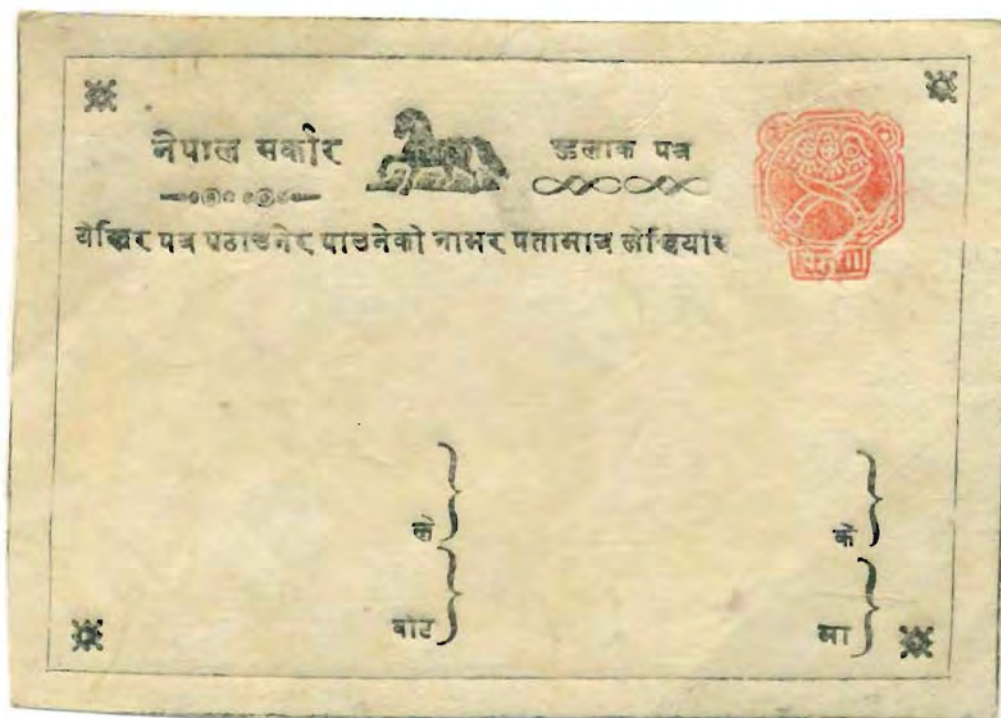 नेपाल सर्कार
हुलाक पत्र
पत्र पठाउनेर पाउनेको नामर पतामात्र
ले
ले
बाट
मा